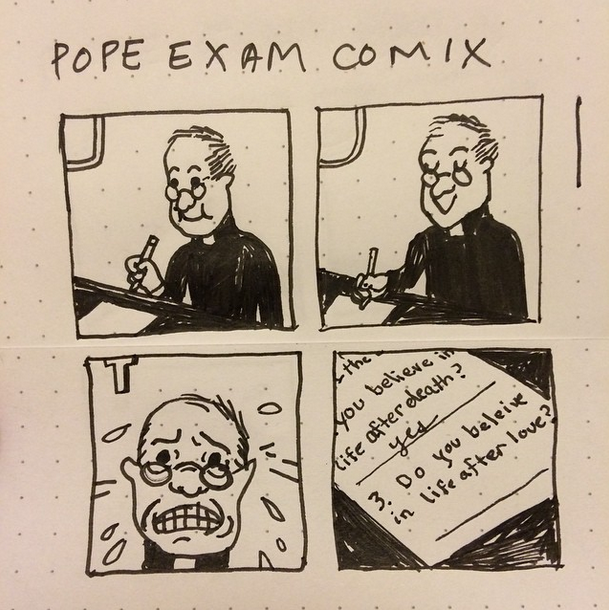 POPE EXAM COMIX
the
you believe in
life after death?
yes
3. Do you beleive
in life after love?